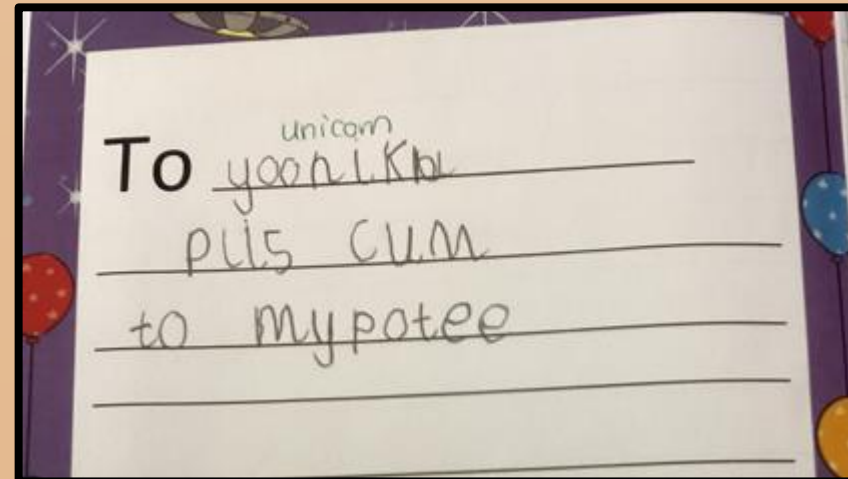 unicorn
To yoonikn
plis cum
to mypotee